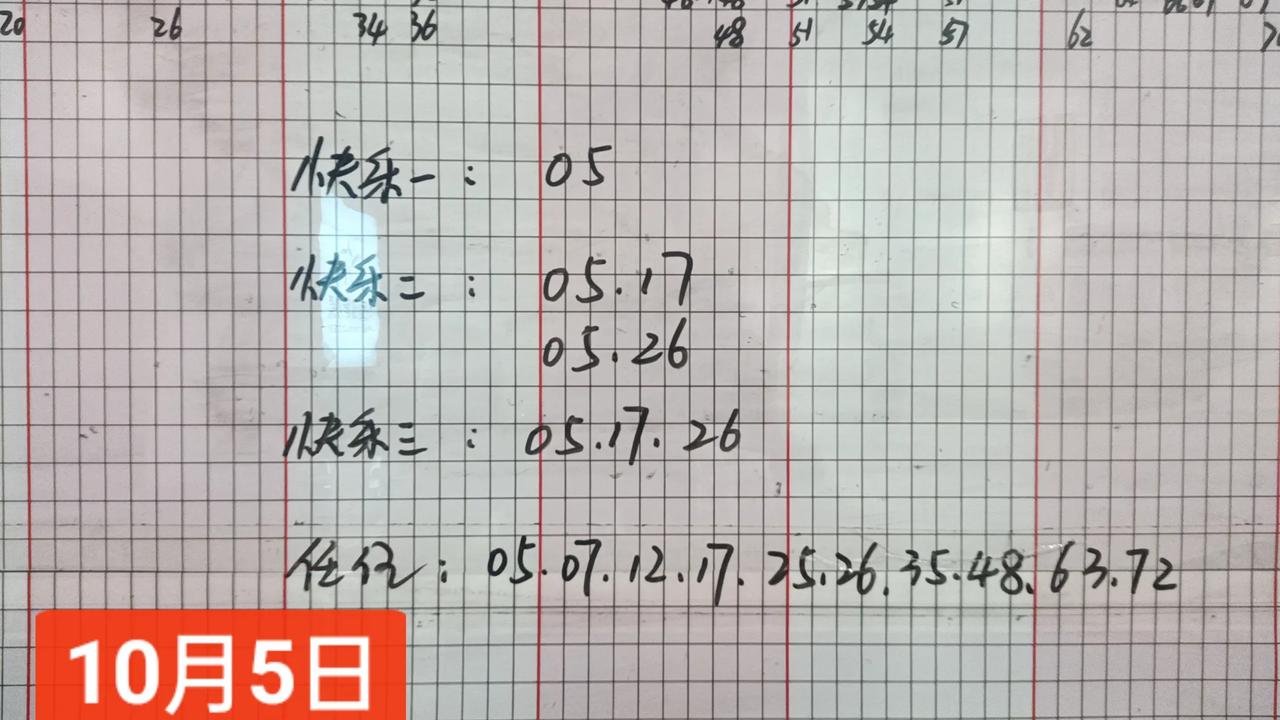 20 26 34 36 48 51 54 57 62
快乐一: 05
快乐二: 05.17
05.26
快乐三: 05.17.26
任何: 05.07.12.17.25.26.35.48.63.72
10月5日